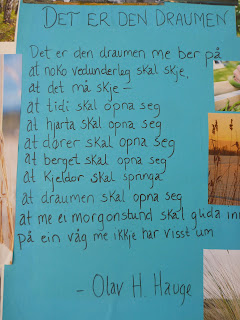 DET ER DEN DRAUMEN
Det er den draumen me ber på
at noko vedunderleg skal skje,
at det må skje –
at tidi skal opna seg
at hjarta skal opna seg
at dører skal opna seg
at berget skal opna seg
at kjeldor skal springa
at draumen skal opna seg
at me ei morgonstund skal glida inn
på ein våg me ikkje har visst um
- Olav H. Hauge